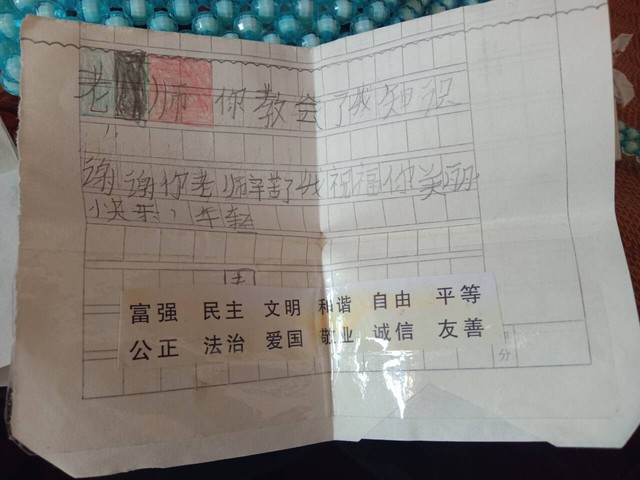 老师你教会了我知识
谢谢你老师辛苦了我祝福你美丽
快乐,年轻
富强 民主 文明 和谐 自由 平等
公正 法治 爱国 敬业 诚信 友善
分